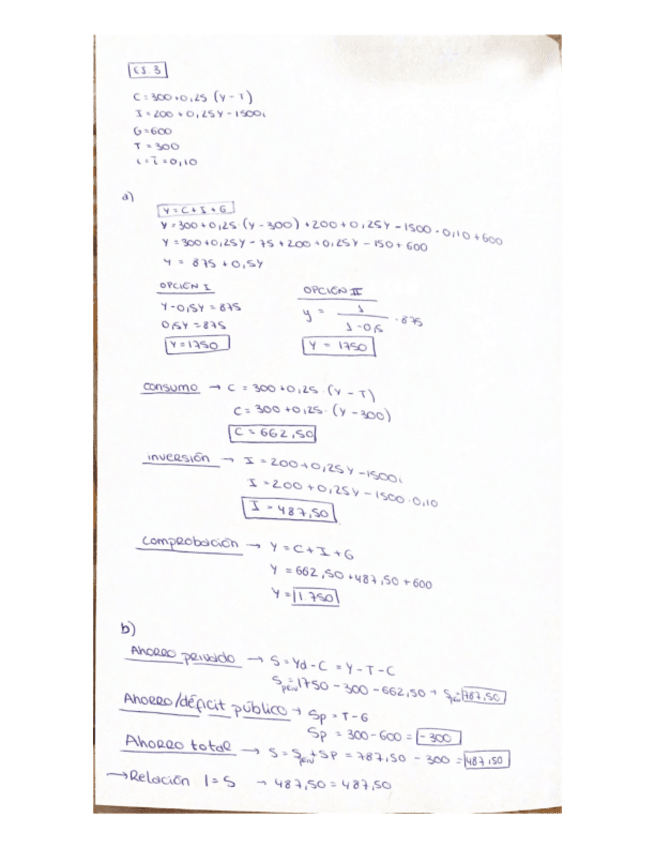 EJ. 3
C = 300+0,25 (Y-T)
I = 200 + 0,25Y - 1500i
G = 600
T = 300
i = ī = 0,10
a)
Y = C + I + G
Y = 300+0,25 (Y-300) + 200 + 0,25Y - 1500 · 0,10 + 600
Y = 300+0,25Y - 75 + 200 + 0,25Y - 150 + 600
Y = 875 + 0,5Y
OPCIÓN I
Y - 0,5Y = 875
0,5Y = 875
Y = 1750
OPCIÓN II
y = 1 / 1-0,5 · 875
Y = 1750
consumo → C = 300 + 0,25 · (Y - T)
C = 300 + 0,25 · (Y - 300)
C = 662,50
inversión → I = 200 + 0,25Y - 1500i
I = 200 + 0,25Y - 1500 · 0,10
I = 487,50
comprobación → Y = C + I + G
Y = 662,50 + 487,50 + 600
Y = 1.750
b)
Ahorro privado → S = Yd - C = Y - T - C
Spriv = 1750 - 300 - 662,50 → Spriv = 787,50
Ahorro/déficit público → Sp = T - G
Sp = 300 - 600 = -300
Ahorro total → S = Spriv + SP = 787,50 - 300 = 487,50
→ Relación I = S → 487,50 = 487,50